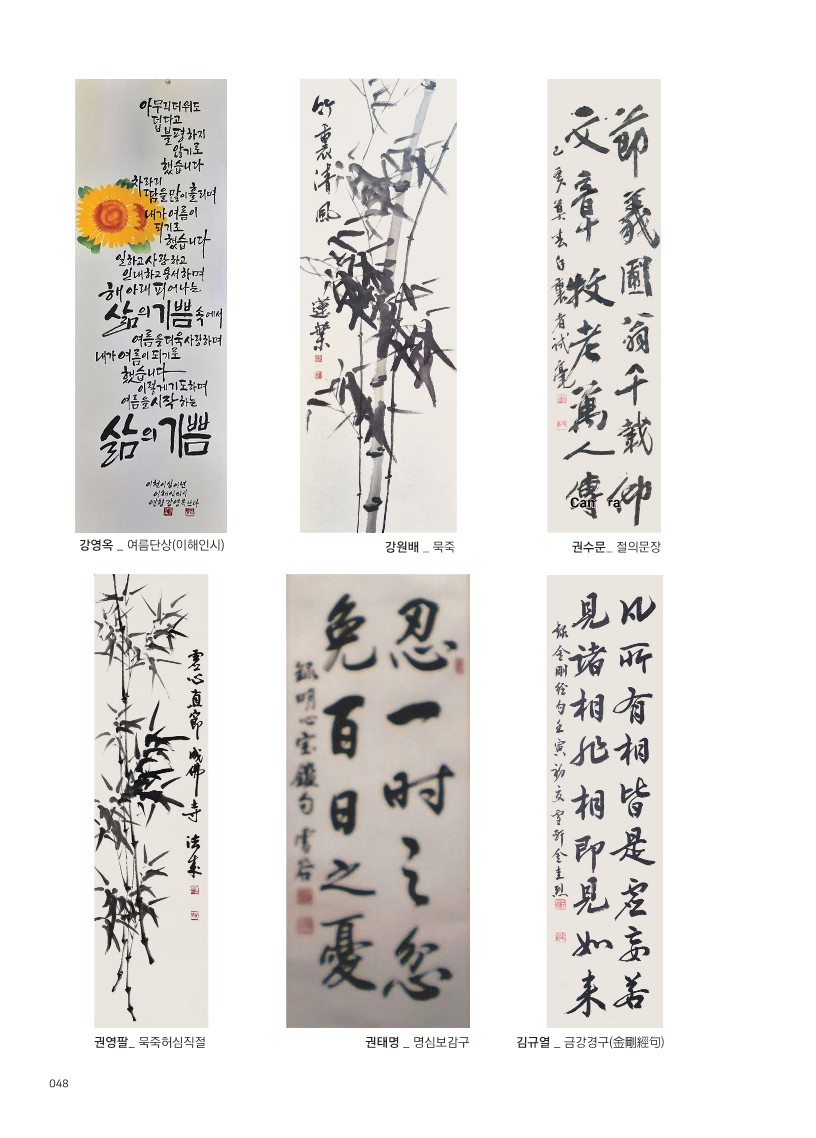 아무리 더워도
덥다고
불평하지
않기로
했습니다
차라리
땀을 많이 흘리며
내가 여름이
되기로
했습니다
일하고 사랑하고
인내하고 용서하며
해 아래 피어나는
삶의 기쁨 속에서
여름을 더욱 사랑하며
내가 여름이 되기로
했습니다
이렇게 기도하며
여름을 시작하는
삶의 기쁨
강영옥 _ 여름단상(이해인시)
竹裏清風
蓮葉
강원배 _ 묵죽
節義圃翁千載仰
文章牧老萬人傳
Cam ra
권수문_ 절의문장
虛心直節 成佛寺 法來
권영팔_ 묵죽허심직절
忍一时之忿
免百日之憂
錄明心宝鑑句 雲谷
권태명 _ 명심보감구
凡所有相皆是虛妄若
見諸相非相即見如来
錄金剛經句壬寅初夏雪軒金圭烈
김규열 _ 금강경구(金剛經句)
048